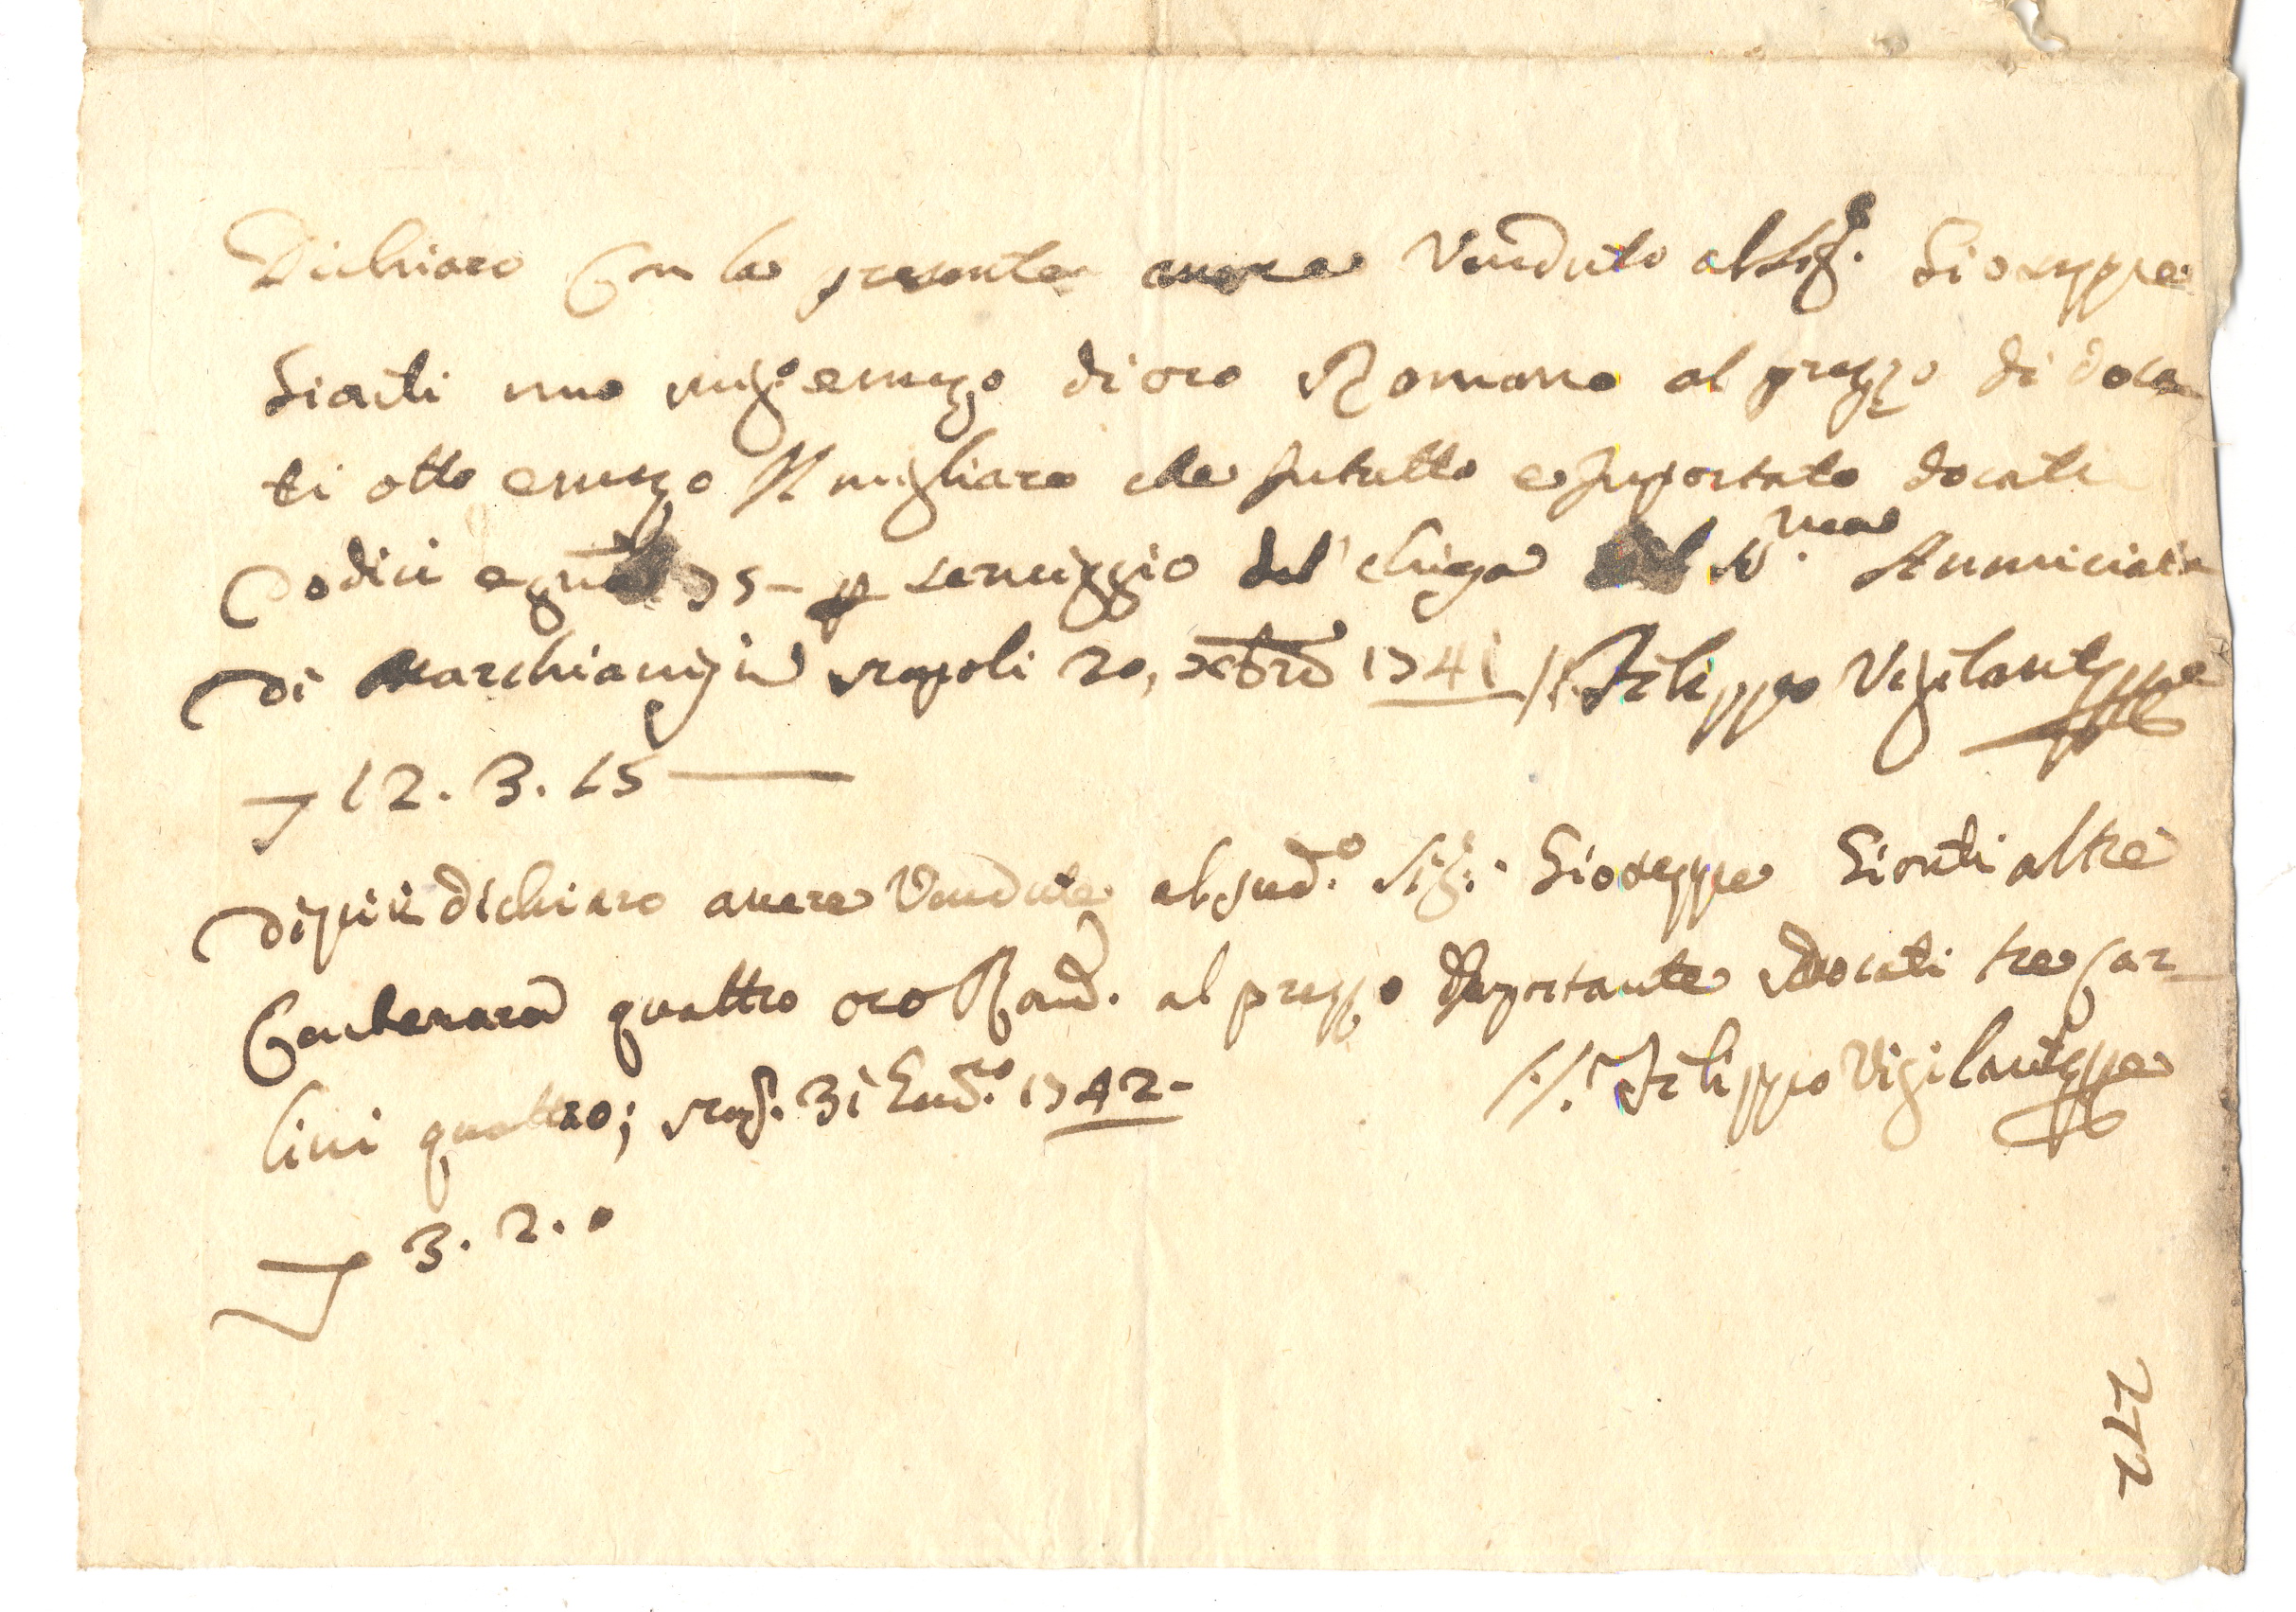 Dichiaro Con la presente auere Venduto al Sig.r Gioseppe
Gianti uno mig.o e mezo di oro Romano al prezzo di doca
ti otto e mezo Il migliaro che in tutto e Inportato docati
Dodici e gna 75 - p seruiggio del chiesa SS. Annunciata
di Marchianisi Napoli 20, Xbre 1741 // Filippo Vigilante
12. 3. 15
di piu dichiaro auere Vendute al sud.o Sig.r Gioseppe Gionti altre
Centenara quattro oro Rom. al prezzo Inportante docati tre Car-
lini quattro; Nap. 31 Enn.ro 1742 - //. Filippo Vigilante
3. 2. 0
272